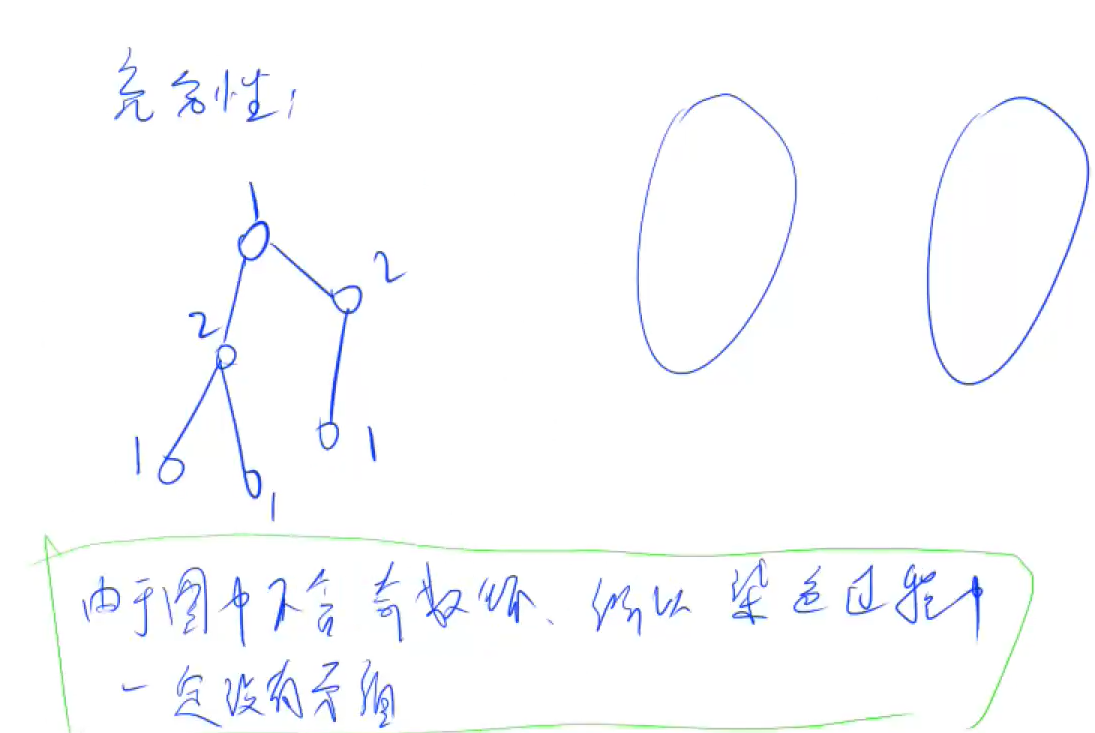 充分性：
1
2
2
1
1
1
由于图中不含奇数环、所以染色过程中
一定没有矛盾